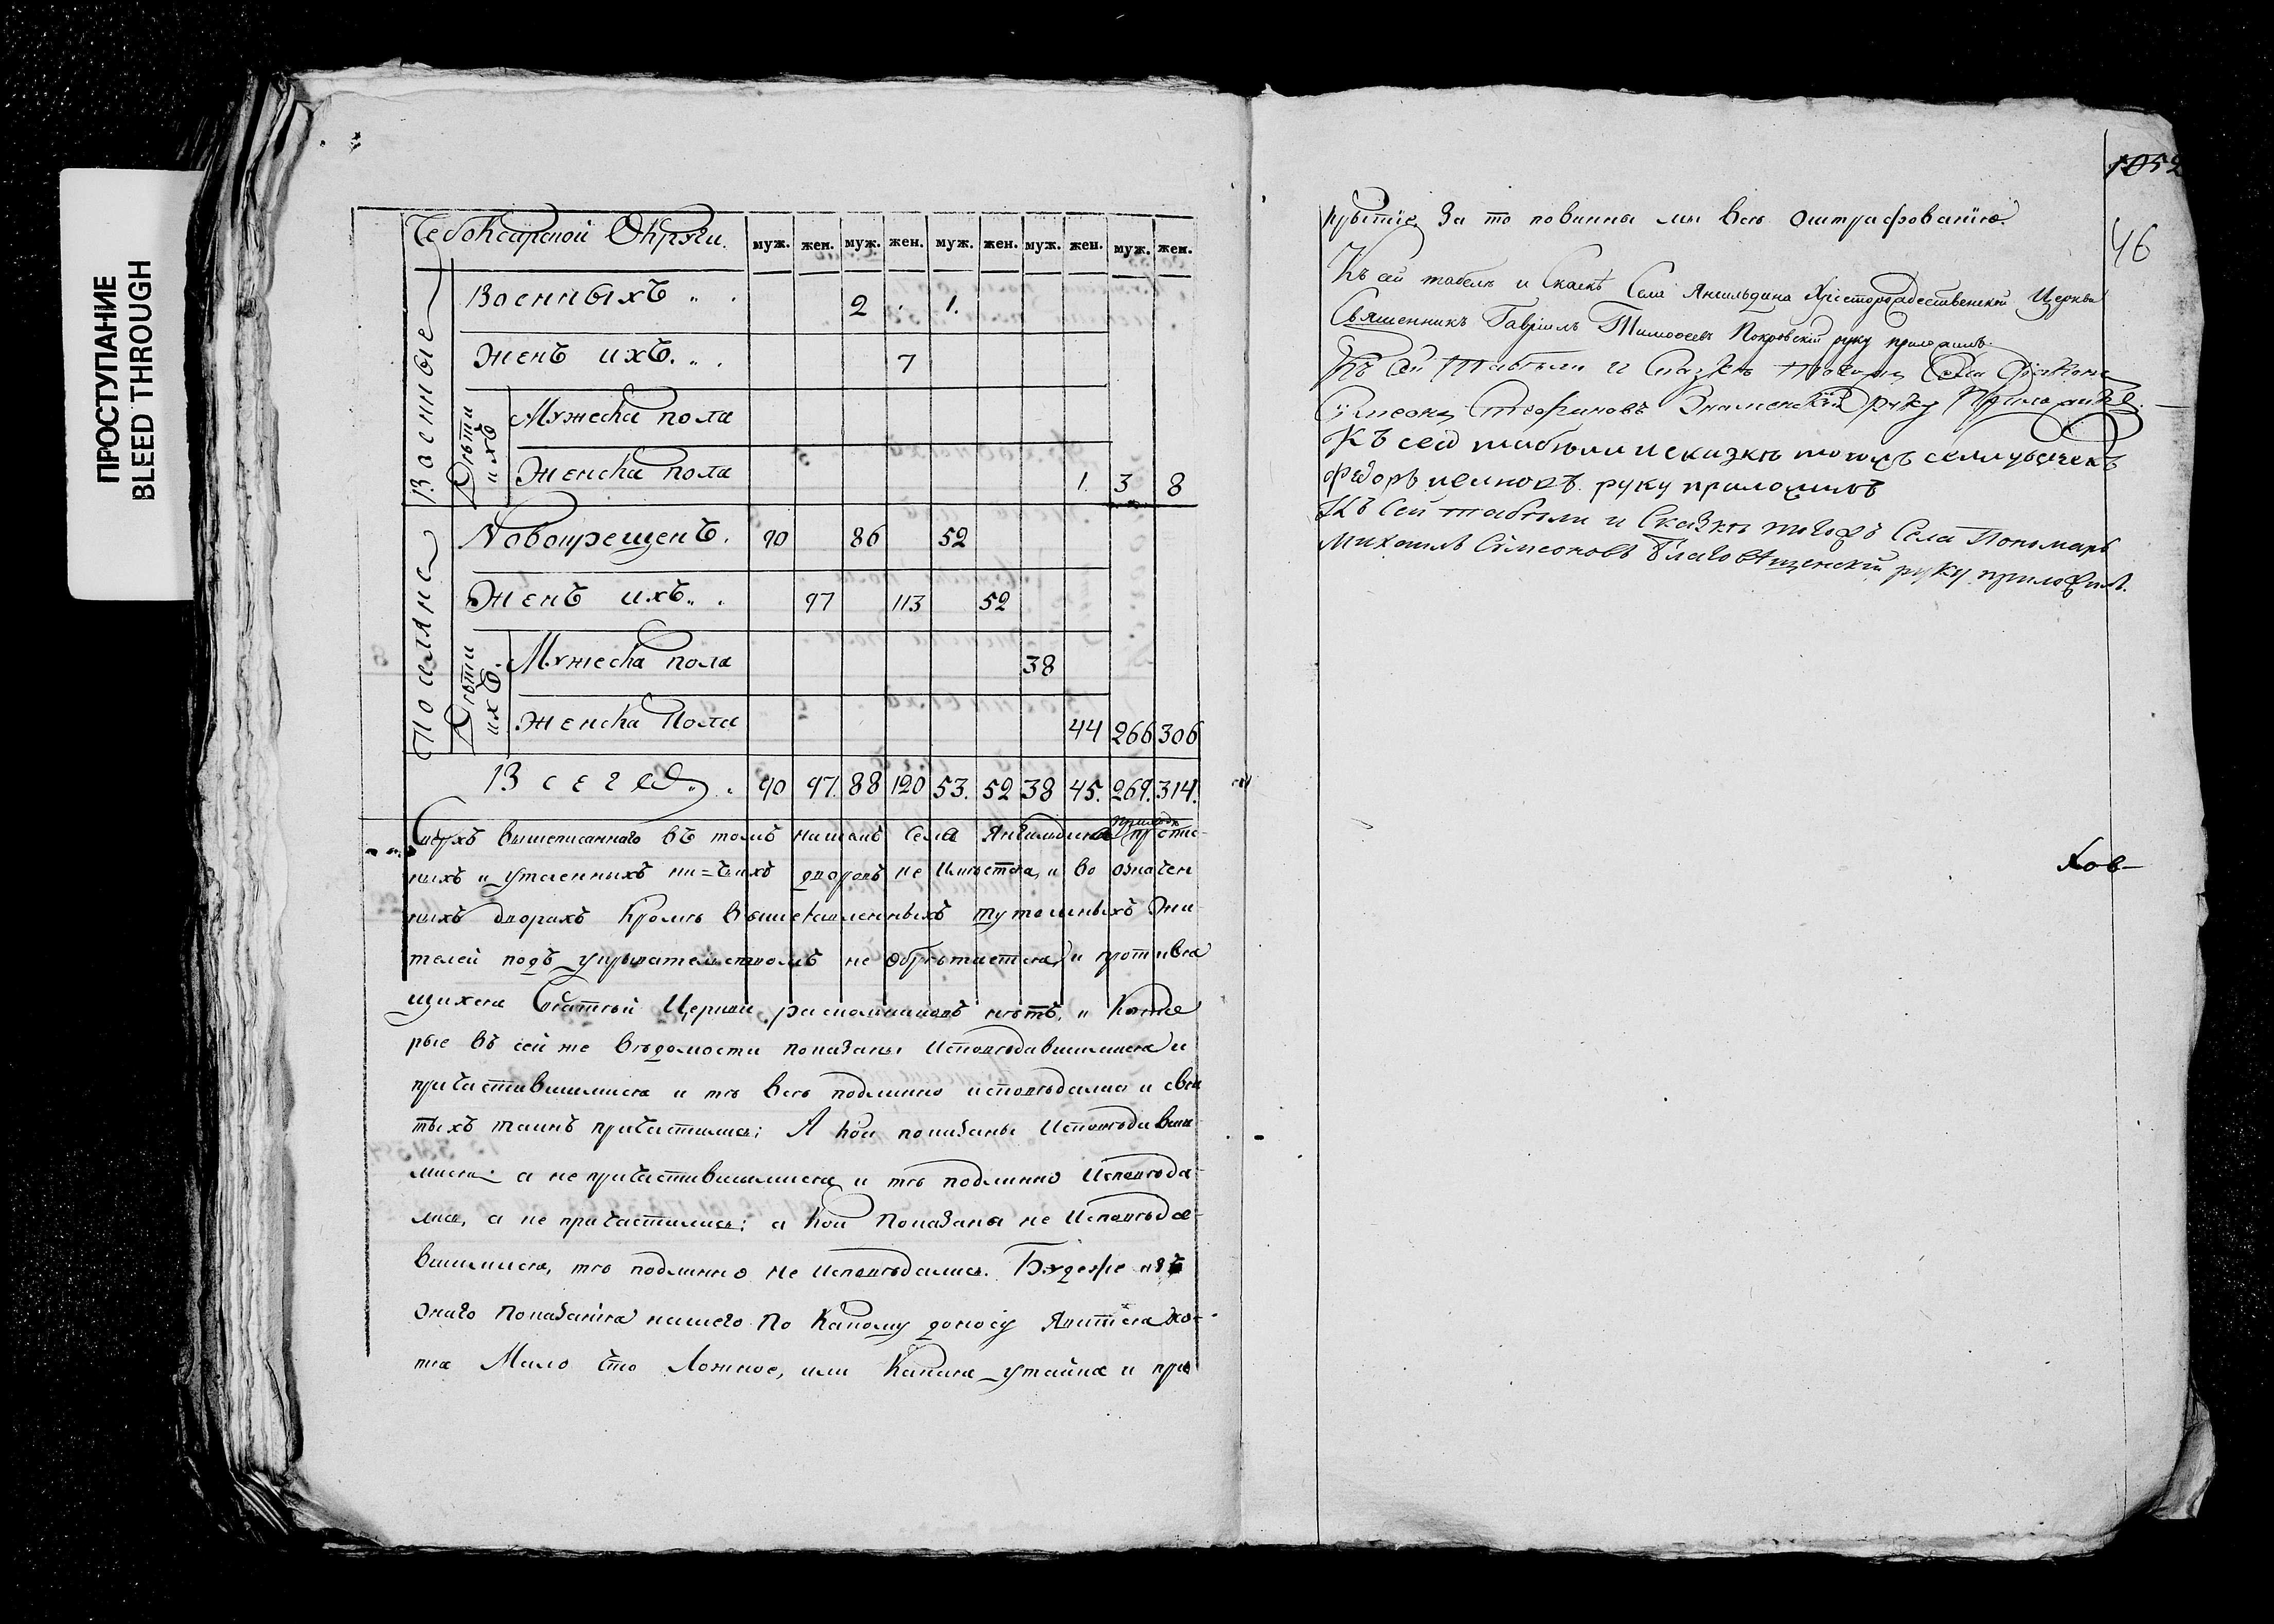 ПРОСТУПАНИЕ
BLEED THROUGH
Чебоксарской Округи. муж. жен. муж. жен. муж. жен. муж. жен. муж. жен.
Военные
Военныхъ 2 1.
Женъ ихъ. 7
Дѣти ихъ
Мужеска пола
Женска пола 1. 3 8
Поселяне
Новокрещенъ. 90 86 52
Женъ ихъ 97 113 52
Дѣти ихъ.
Мужеска пола 38
Женска Пола 44 266 306
Всего 90 97. 88 120 53. 52 38 45. 269. 314.
Сверхъ вышеписаннаго въ томъ нашемъ селѣ Янгильдина приходѣ прописныхъ
и утаенныхъ ни=чьихъ дворовъ не имѣется, и во означен
ныхъ дворахъ кромѣ вышеявленныхъ тутошныхъ жи
телей подъ укрывателствомъ не обрѣтается, и противя
щихся Святѣй Церкви раскольниковъ нѣтъ, и Кото
рые въ сей же вѣдомости показаны Исповѣдавшимися и
причастившимися и тѣ всѣ подлинно исповѣдались и свя
тыхъ таинъ причастились; А кои показаны Исповѣдавши
мися а не причастившимися и тѣ подлинно Исповѣда
лись, а не причастились; а кои Показаны не Исповѣда-
вшимися, тѣ подлинно не Исповѣдались. Будеже изъ
онаго показанія нашего по какому доносу явится хо-
тя Мало что Ложное, или Какая утайка и при
1052
крытіе, За то повинны мы всѣ оштрафованію.
46
Къ сей табелѣ и Сказкѣ Села Янгильдина Хрісторождественской Церкви
Священникъ Гавріилъ Тимоѳеевъ Покровскій руку приложилъ.
Къ сей Табели и Сказкѣ Села Діаконъ
Сѵмеонъ Знаменскій руку Приложилъ.
Къ сей табѣли и сказкѣ тогожъ села дьячекъ
Федоръ руку приложилъ
Къ Сей табѣли и Сказкѣ тогожъ Села Пономарь
Михаилъ Сѵмеоновъ Благовѣщенскій руку приложилъ.
ков-